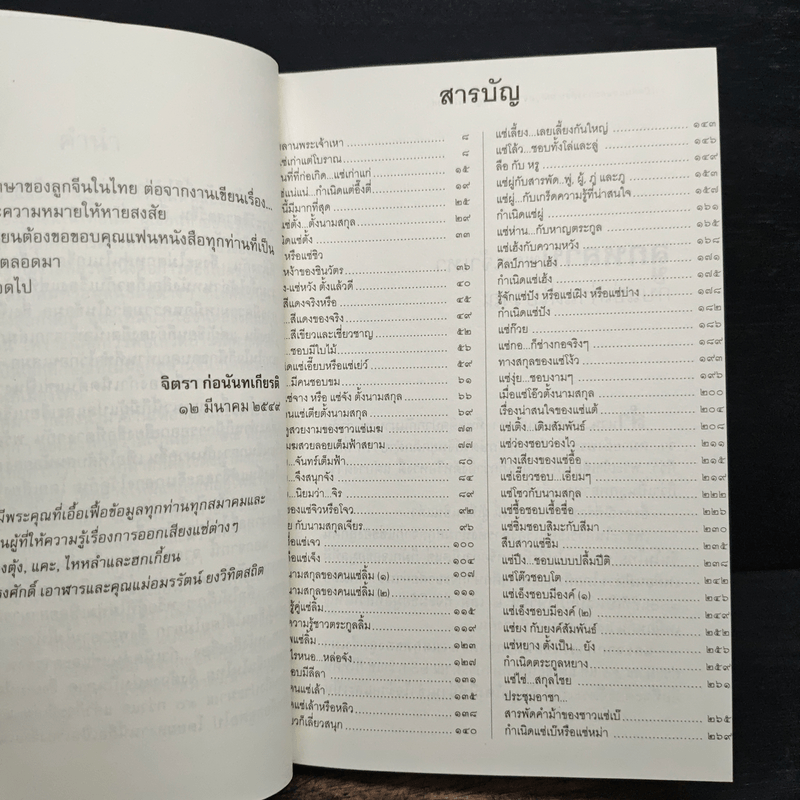 าษาของลูกจีนในไทย ต่อจากงานเขียนเรื่อง...
ะความหมายให้หายสงสัย
ยนต้องขอขอบคุณแฟนหนังสือทุกท่านที่เป็น
ตลอดมา
อดไป
จิตรา ก่อนันทเกียรติ
๑๒ มีนาคม ๒๕๔๙
มีพระคุณที่เอื้อเฟื้อข้อมูลทุกท่านทุกสมาคมและ
นผู้ที่ให้ความรู้เรื่องการออกเสียงแซ่ต่างๆ
งตุ้ง, แคะ, ไหหลำและฮกเกี้ยน
รงศักดิ์ เอาฬารและคุณแม่อมรรัตน์ ยงวิทิตสถิต
สารบัญ
ลานพระเจ้าเหา ๘
แซ่เก่าแต่โบราณ ๘
นที่ที่ก่อเกิด...แซ่เก่าแก่ ๑๕
แซ่แน่แน่...กำเนิดแต่อึ้งตี่ ๑๙
นี้มีมากที่สุด ๒๕
แซ่ตั้ง...ตั้งนามสกุล ๒๙
นิดแซ่ตั้ง ๓๓
หรือแซ่ชิว
หง้าของชินวัตร ๓๖
ง-แซ่หวัง ตั้งแล้วดี ๔๐
สีแดงจริงหรือ ๔๕
...สีแดงของจริง ๔๙
...สีเขียวและเชี่ยวชาญ ๕๒
...ชอบมีใบไม้ ๕๖
ดแซ่เอี๊ยบหรือแซ่เย่ว์ ๕๙
...มีคนชอบชม ๖๑
แซ่จาง หรือ แซ่จัง ตั้งนามสกุล ๖๖
านแซ่เตียตั้งนามสกุล ๖๙
งสวยงามของชาวแซ่เมฆ ๗๓
มฆสวยลอยเต็มฟ้าสยาม ๗๗
...จันทร์เต็มฟ้า ๘๐
...จึงสนุกจัง ๘๔
...นิยมว่า...จิร ๘๙
องแซ่จิวหรือโจว ๙๒
ย กับนามสกุลเจียร ๙๖
อแซ่เจว ๑๐๐
อแซ่เจ็ง ๑๐๔
นามสกุลของคนแซ่ลิ้ม (๑) ๑๐๗
นามสกุลของคนแซ่ลิ้ม (๒) ๑๑๑
รู้คู่แซ่ลิ้ม ๑๑๕
ความรู้ชาวตระกูลลิ้ม ๑๑๙
พแซ่ลิ้ม ๑๒๓
ไรหนอ...หล่อจัง ๑๒๗
อบมีลีลา ๑๓๑
นแซ่เล้า ๑๓๕
ดแซ่เล้าหรือหลิว ๑๓๘
ยวก็เลี่ยวสนุก ๑๔๐
แซ่เลี้ยง...เลยเลี้ยงกันใหญ่ ๑๔๓
แซ่โล้ว...ชอบทั้งโล่และลู่ ๑๔๖
ลือ กับ หรู ๑๔๙
แซ่ผู่กับสารพัด...ฟู่, ผู้, ภู่ และภู ๑๕๓
แซ่ผู่...กับเกร็ดความรู้ที่น่าสนใจ ๑๕๗
กำเนิดแซ่ผู่ ๑๖๑
แซ่ห่าน...กับหาญตระกูล ๑๖๕
แซ่เฮ้งกับความหวัง ๑๖๘
ศิลป์ภาษาเฮ้ง ๑๗๑
กำเนิดแซ่เฮ้ง ๑๗๕
รู้จักแซ่ปัง หรือแซ่เฝิง หรือแซ่บาง ๑๗๘
กำเนิดแซ่ปัง ๑๘๒
แซ่ก๊วย ๑๘๖
แซ่กอ...ก็ช่างกอจริงๆ ๑๘๙
ทางสกุลของแซ่โง้ว ๑๙๓
แซ่งุ่ย...ชอบงามๆ ๑๙๖
เมื่อแซ่โอ๊วตั้งนามสกุล ๒๐๐
เรื่องน่าสนใจของแซ่แต้ ๒๐๔
แซ่เติ้ง...เดิมสัมพันธ์ ๒๐๘
แซ่ว่องชอบว่องไว ๒๑๑
ทางเสียงของแซ่อื้อ ๒๑๕
แซ่เอี้ยวชอบ...เอี่ยมๆ ๒๑๙
แซ่โซวกับนามสกุล ๒๒๒
แซ่ซือชอบเชื้อชื่อ ๒๒๖
แซ่ซิ้มชอบสิมะกับสีมา ๒๓๐
สืบสาวแซ่ซิ้ม ๒๓๕
แซ่ปึง...ชอบแบบปลื้มปีติ ๒๓๘
แซ่โต๊วชอบโต ๒๔๒
แซ่เอ็งชอบมีองค์ (๑) ๒๔๖
แซ่เอ็งชอบมีองค์ (๒) ๒๔๙
แซ่ยง กับยงค์สัมพันธ์ ๒๕๒
แซ่หยาง ตั้งเป็น... ยัง ๒๕๖
กำเนิดตระกูลหยาง ๒๕๙
แซ่ไซ่...สกุลไชย ๒๖๑
ประชุมอาชา...
สารพัดคำม้าของชาวแซ่เบ๊ ๒๖๕
กำเนิดแซ่เบ๊หรือแซ่หม่า ๒๖๙